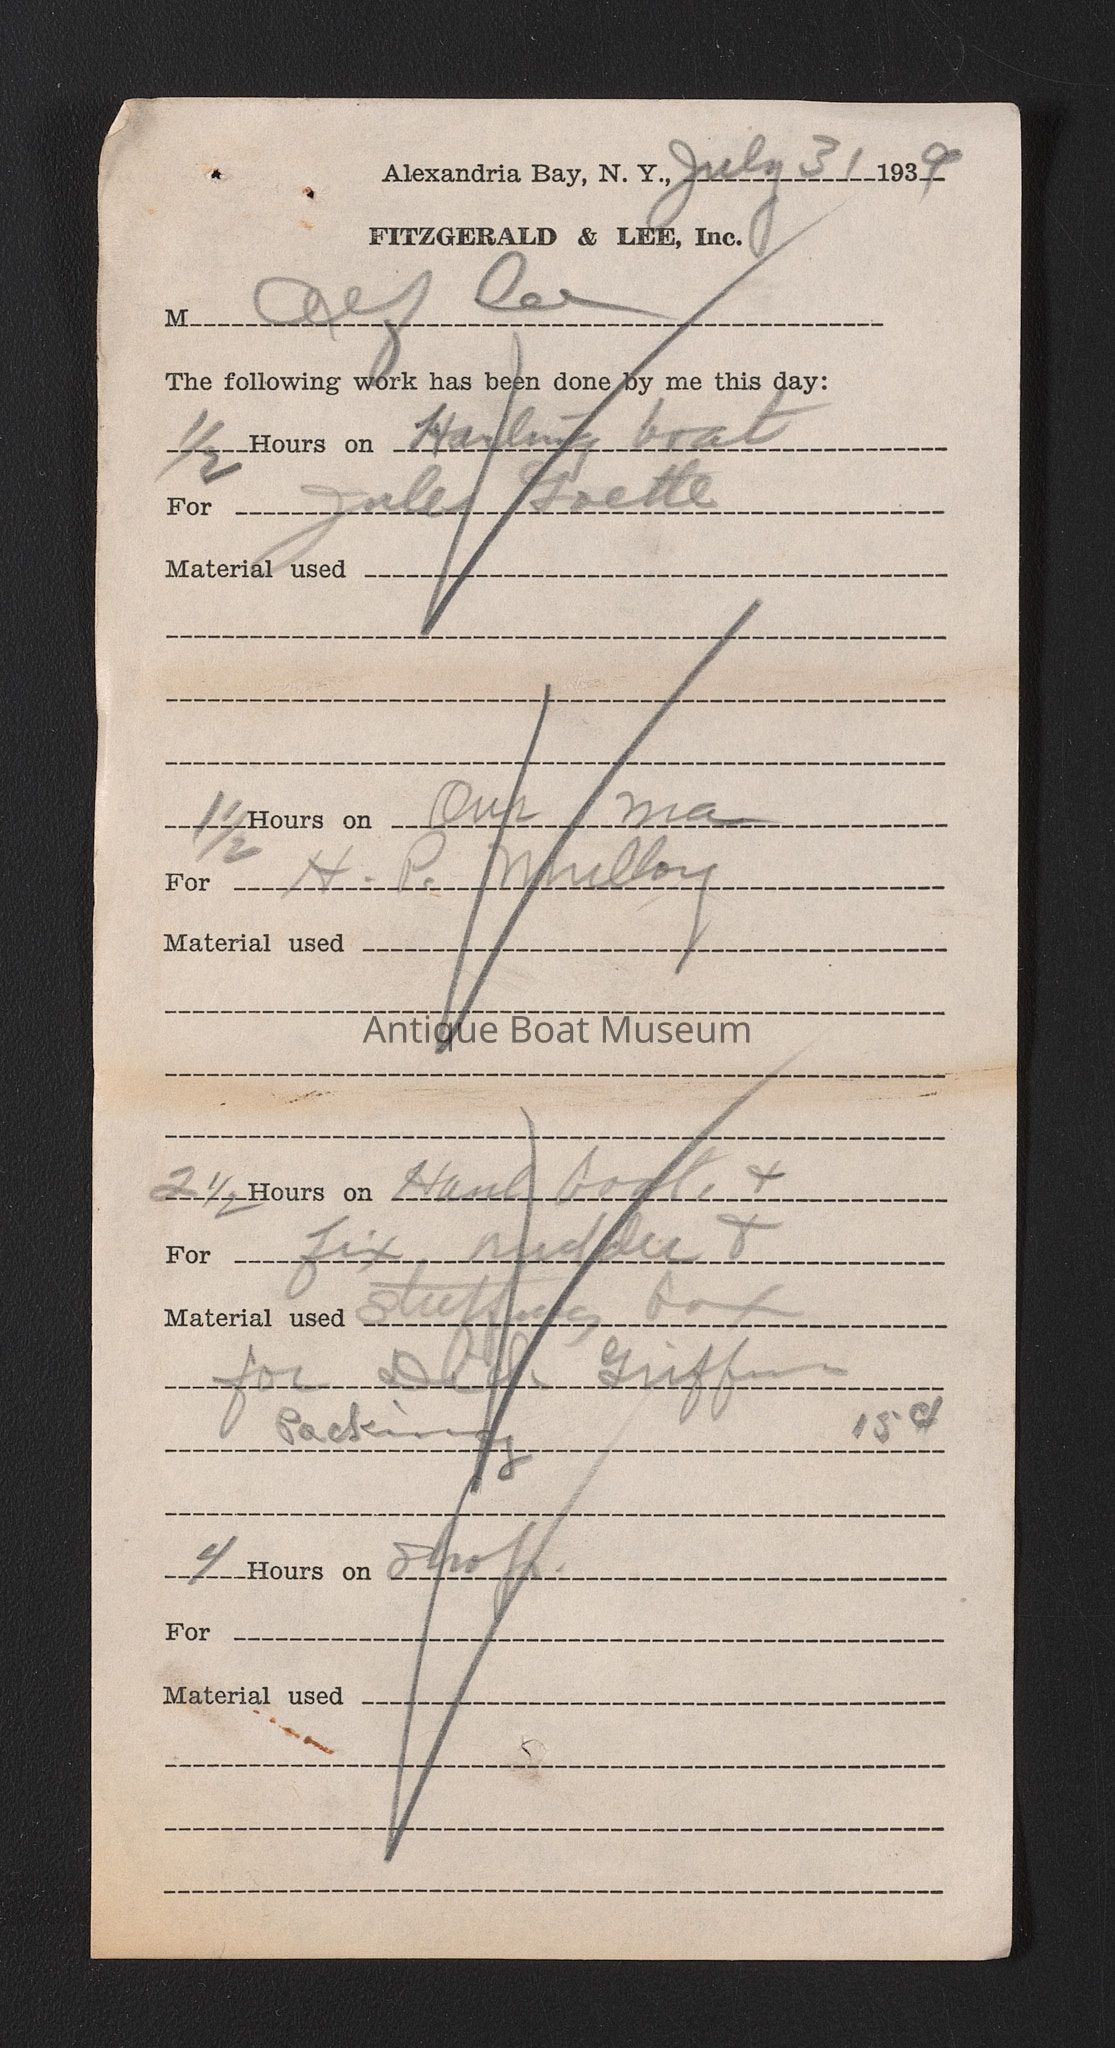 Alexandria Bay, N. Y., July 31 1939
FITZGERALD & LEE, Inc.
M Alf Lee
The following work has been done by me this day:
1/2 Hours on Hauling boat
For Jules
Material used
1 1/2 Hours on Our ma
For H. P. Mulloy
Material used
Antique Boat Museum
2 1/2 Hours on Haul boat, &
For fix rudder &
Material used stuffing box
for Dick Griffin
Packing 15¢
4 Hours on Shop.
For
Material used